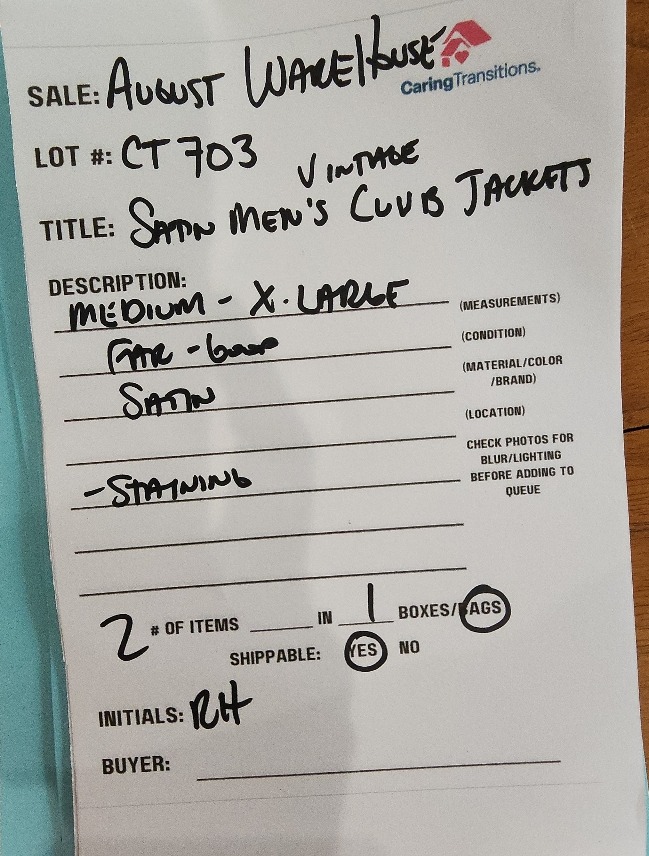 SALE: AUGUST WAREHOUSE
CaringTransitions.
LOT #: CT 703
VINTAGE
TITLE: SATIN MEN'S CLUB JACKETS
DESCRIPTION:
MEDIUM - X-LARGE (MEASUREMENTS)
FAIR - GOOD (CONDITION)
SATIN (MATERIAL/COLOR
/BRAND)
(LOCATION)
CHECK PHOTOS FOR
BLUR/LIGHTING
- STAINING BEFORE ADDING TO
QUEUE
2 # OF ITEMS ____ IN 1 BOXES/BAGS
SHIPPABLE: YES NO
INITIALS: RH
BUYER: